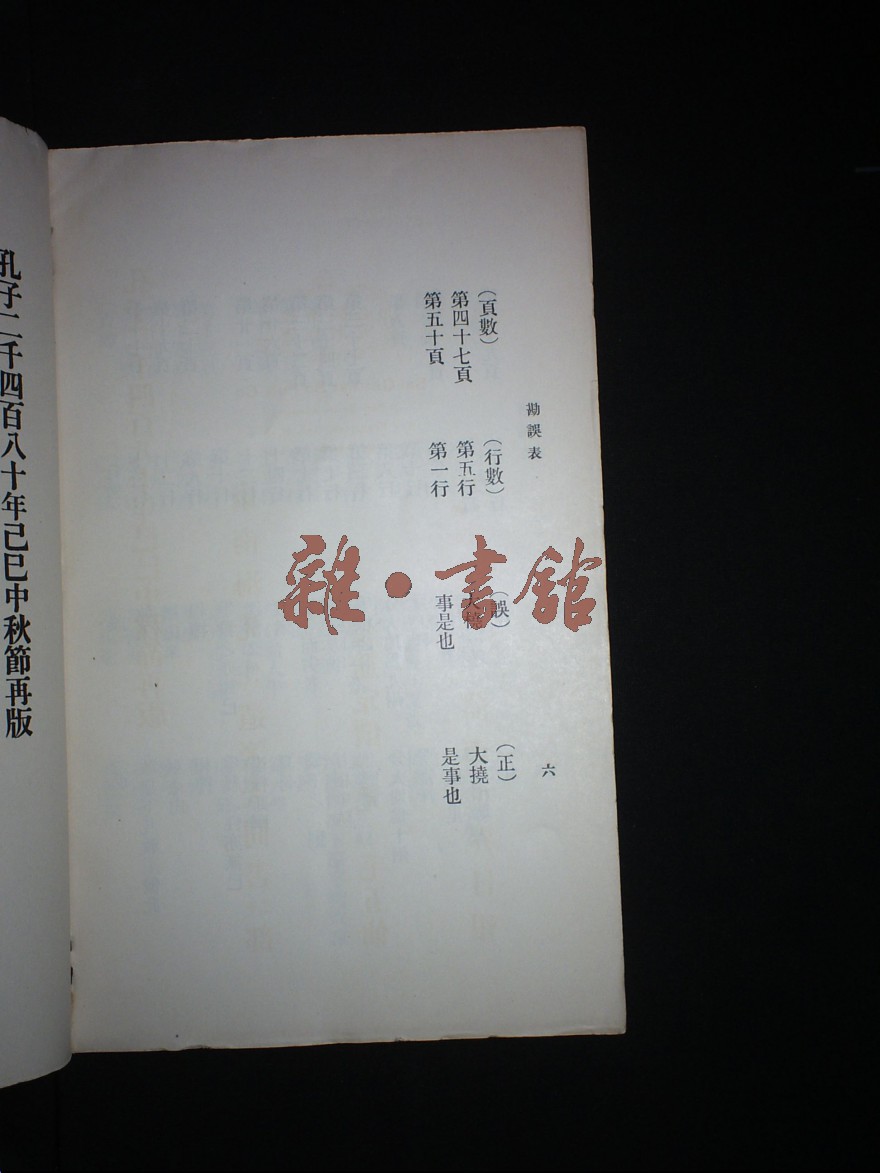 勘誤表
六
(頁數) (行數) (誤) (正)
第四十七頁 第五行 大撓
第五十頁 第一行 事是也 是事也
孔子二千四百八十年己巳中秋節再版
雜·書館